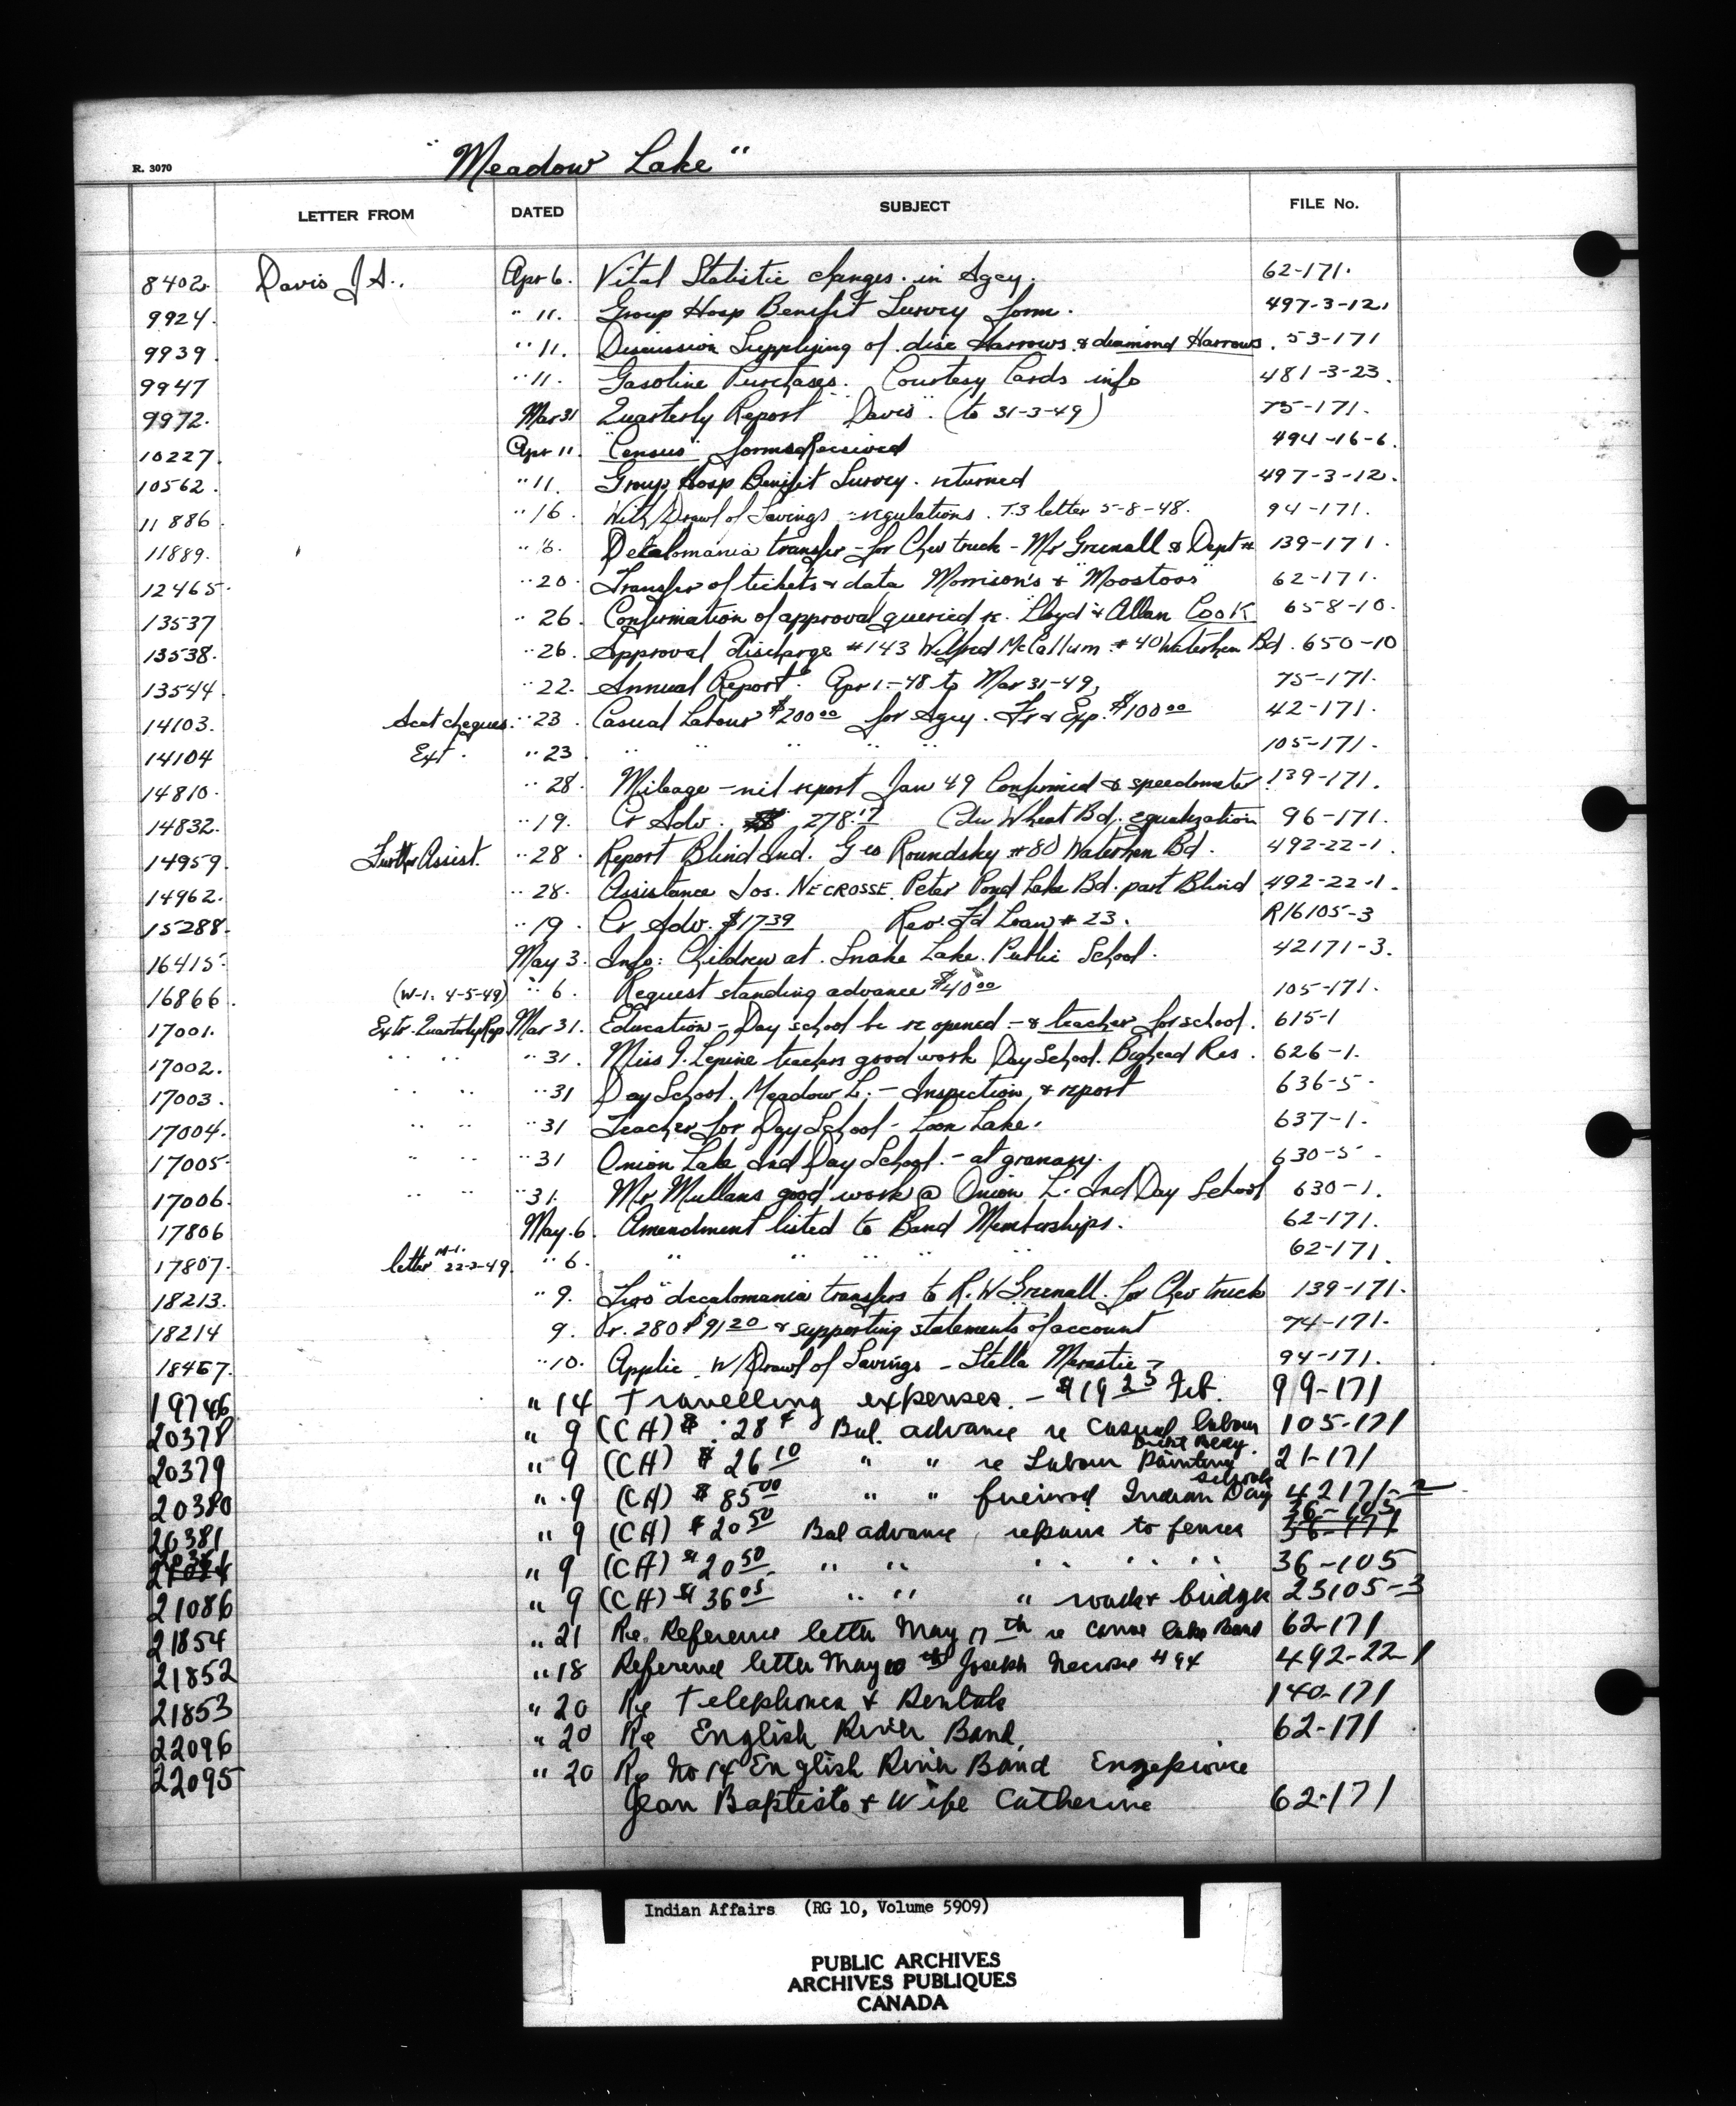 "Meadow Lake"
R. 3070
LETTER FROM DATED SUBJECT FILE No.
8402. Davis J A.. Apr 6. Vital Statistic changes. in Agcy. 62-171.
9924. " 11. Group Hosp Benefit Survey form. 497-3-12.
9939. " 11. Discussion Supplying of disc Harrows & diamond Harrows. 53-171
9947 " 11. Gasoline Purchases. Courtesy Cards info 481-3-23.
9972. Mar 31 Quarterly Report "Davis". (to 31-3-49) 75-171.
10227. Apr 11 "Census" forms Received 494-16-6.
10562. " 11. Group Hosp Benefit Survey. returned 497-3-12.
11886. " 16. With/Drawl of Savings - regulations. T.3 letter 5-8-48. 94-171.
11889. " 6. Decalomania transfer - for Chev truck - Mr Greenall & Dept # 139-171.
12465. " 20. Transfer of tickets & data Morrison's & "Moostoos" 62-171.
13537 " 26. Confirmation of approval queried re. Lloyd & Allan Cook 658-10.
13538. " 26. Approval discharge #143 Wilfred McCallum #40 Waterhen Bd. 650-10
13544. " 22. Annual Report. Apr 1-48 to Mar 31-49, 75-171.
14103. Acct cheques. " 23. Casual Labour $200 00 for Agcy. Fr & Exp. $100 00 42-171.
14104 Ext. " 23 " " " " " 105-171.
14810. " 28. Mileage - nil report Jan 49 Confirmed & speedometer. 139-171.
14832. " 19. Cr Adv. 278.17 Cdn Wheat Bd. equalization 96-171.
14959. Further Assist. " 28. Report Blind Ind. Geo Roundsky #80 Waterhen Bd. 492-22-1.
14962. " 28. Assistance Jos. NECROSSE. Peter Pond Lake Bd. part Blind 492-22-1.
15288. " 19. Cr Adv. $17 39 Rev. Fd Loan # 23. R16105-3
16415. May 3. Info: Children at. Snake Lake. Public School. 42171-3.
16866. (W-1. 4-5-49) " 6. Request standing advance $40 00 105-171.
17001. Extr. Quarterly Rep. Mar 31. Education - Day school be re opened - & teacher for school. 615-1
17002. " " " 31. Miss I. Lepine teachers good work Day School. Bighead Res. 626-1.
17003. " " " 31 Day School. Meadow L. - Inspection & report 636-5.
17004. " " " 31 Teacher for Day School - Loon Lake. 637-1.
17005. " " " 31 Onion Lake Ind Day School. - at granary. 630-5-
17006. " " " 31. Mr Mullans good work @ Onion L. Ind Day School 630-1.
17806 May. 6. Amendment listed to Band Memberships. 62-171.
17807. letter M-1. 22-2-49. " 6. " " " " 62-171.
18213. " 9. Two "decalomania transfers to R. W Greenall. for Chev truck 139-171.
18214 9. Vr. 280 $91 20 & supporting statements of account 74-171.
18467. " 10. Applic. W/Drawl of Savings - Stella Merastie - 94-171.
19746 " 14 Travelling expenses. - $19 25 Feb. 99-171
20378 " 9 (CA) $ .28 ¢ Bal. advance re casual labour 105-171
20379 " 9 (CA) $ 26 10 " " re Labour Painting 21-171
20380 " 9 (CA) $ 85 00 " " firewood Indian Day schools 42171-2
20381 " 9 (CA) $ 20 50 Bal advance repairs to fences 36-105 36-171
" 9 (CA) $ 20 50 " " " " " " 36-105
21086 " 9 (CA) $ 36 05 " " " roads & bridges 25105-3
21854 " 21 Re. Reference letter May 17th re Canoe Lake Band 62-171
21852 " 18 Reference letter May 10th Joseph Necrose #94 492-22-1
21853 " 20 Re Telephones & Rentals 140-171
22096 " 20 Re English River Band, 62-171
22095 " 20 Re No 14 English River Band
Jean Baptiste & Wife Catherine 62-171
Indian Affairs (RG 10, Volume 5909)
PUBLIC ARCHIVES
ARCHIVES PUBLIQUES
CANADA